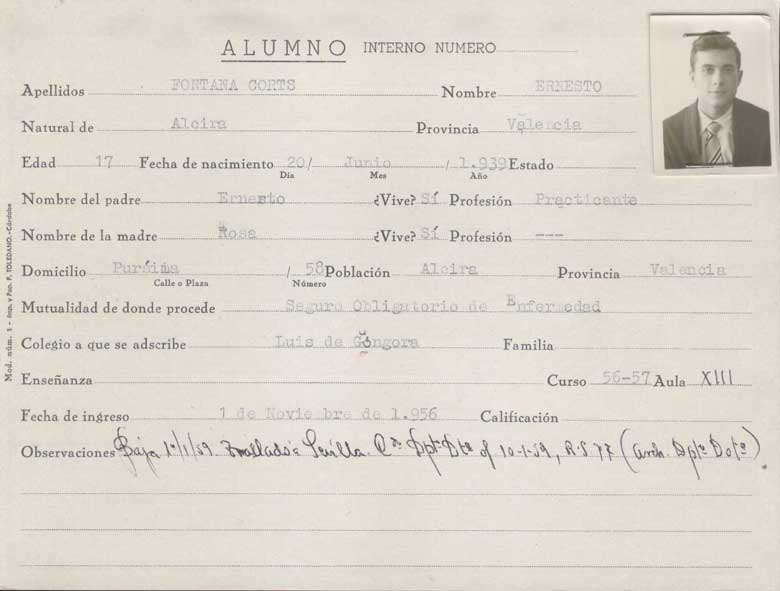 ALUMNO INTERNO NUMERO
Apellidos FONTANA CORTS Nombre ERNESTO
Natural de Alcira Provincia Valencia
Edad 17 Fecha de nacimiento 20/ Junio / 1.939 Estado
Día Mes Año
Nombre del padre Ernesto ¿Vive? Sí Profesión Practicante
Nombre de la madre Rosa ¿Vive? Sí Profesión ---
Domicilio Purísima / 58 Población Alcira Provincia Valencia
Calle o Plaza Número
Mutualidad de donde procede Seguro Obligatorio de Enfermedad
Colegio a que se adscribe Luis de Góngora Familia
Enseñanza Curso 56-57 Aula XIII
Fecha de ingreso 1 de Noviembre de 1.956 Calificación
Observaciones Baja 1º/1/59. Trasllado a Sevilla. Dptº of 10-1-59, R.S 77 (Arch. Dptº Dotº).
Mod. núm. 1 - Imp. y Pap. F. TOLEDANO.-Córdoba